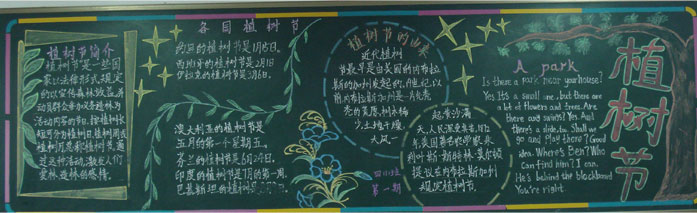 植树节简介
植树节是一些国
家以法律形式规定
的以宣传森林效益并
动员群众参加义务植树为
活动内容的节日。按植树长
短可分为植树日、植树周或
植树月总称植树类,通
过这种活动,激发人们
爱林、造林的感情。
各国植树节
约旦的植树节是1月15日。
西班牙的植树节是2月1日
伊拉克的植树节是3月6日。
澳大利亚的植树节是
五月的第一个星期五。
芬兰的植树节是6月24日。
印度的植树节是7月的第一周。
巴基斯坦的植树
植树节的由来
近代植树
节最早是由美国的内布拉
斯加州发起的。
前内布拉斯加州是一片光秃
秃的荒原,树木稀
少土地干燥
大风一
起黄沙满
天,人民深受其苦。1872
年,美国著名农学家朱
利叶斯·斯特林·莫尔顿
提议在内布拉斯加州
规定植树节
第一期
A park
Is there a park near your house?
Yes. It's a small one, but there are
a lot of flowers and trees. Are
there any swings? Yes. And
there's a slide, too. Shall we
go and play there? Good
idea. Where's Ben? Who
Can find him? I can.
He's behind the blackboard
You're right.
植树节